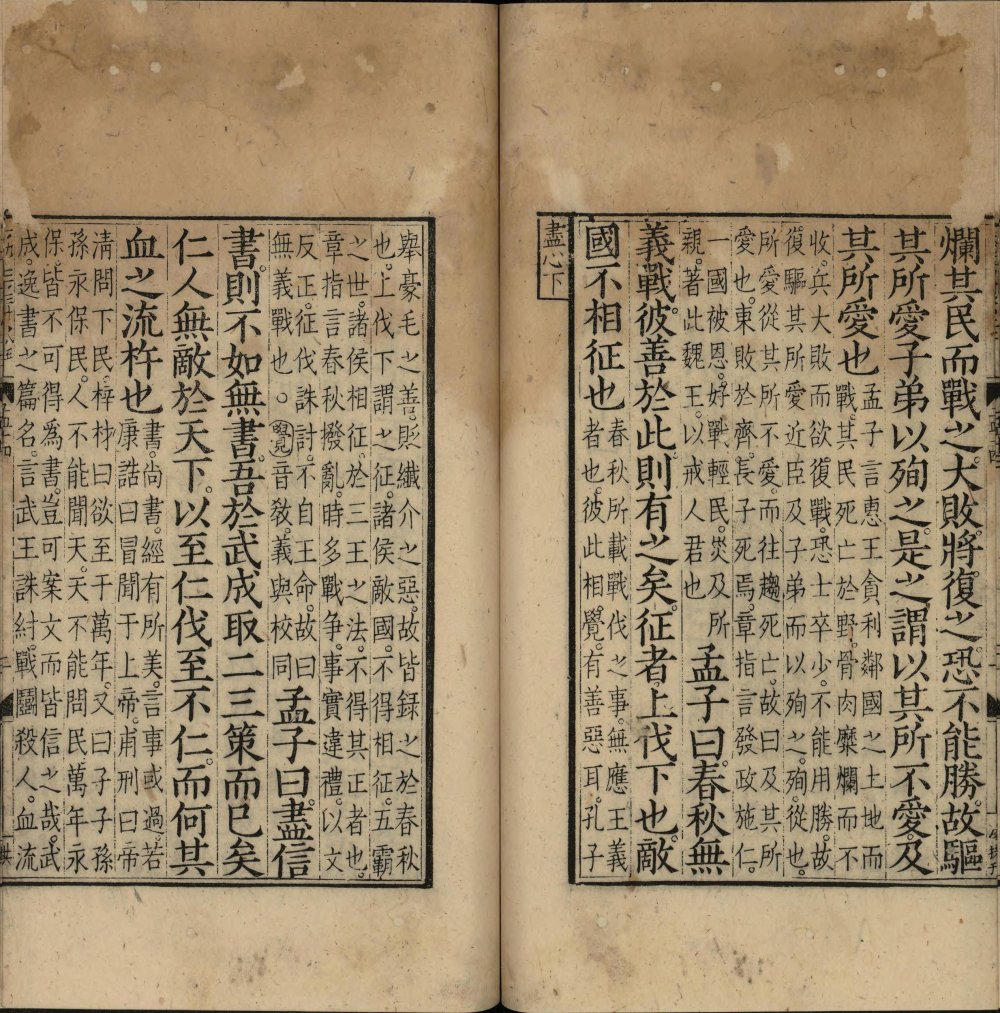 爛其民而戰之。大敗。將復之。恐不能勝。故驅
其所愛子弟以殉之。是之謂以其所不愛。及
其所愛也
孟子言惠王貪利鄰國之土地而
戰其民死亡於野。骨肉糜爛而不
收。兵大敗而欲復戰。恐士卒少。不能用勝。故
復驅其所愛近臣及子弟而以殉之。殉。從也。
所愛從其所不愛。而往趨死亡。故曰及其所
愛也。東敗於齊。長子死焉。章指言發政施仁。
一國被恩。好戰輕民。災及所
親。著此魏王。以戒人君也
孟子曰。春秋無
義戰。彼善於此。則有之矣。征者上伐下也。敵
國不相征也
春秋所載戰伐之事。無應王義
者也。彼此相覺。有善惡耳。孔子
盡心下
舉豪毛之善。貶纖介之惡。故皆錄之於春秋
也。上伐下謂之征。諸侯敵國。不得相征。五霸
之世。諸侯相征。於三王之法。不得其正者也。
章指言春秋撥亂。時多戰爭。事實違禮。以文
反正。征伐誅討。不自王命。故曰
無義戰也。○覺音敎。義與校同
孟子曰。盡信
書。則不如無書。吾於武成取二三策而已矣
仁人無敵於天下。以至仁伐至不仁。而何其
血之流杵也
書。尚書。經有所美。言事或過。若
康誥曰冒聞于上帝。甫刑曰帝
清問下民。梓材曰欲至于萬年。又曰子子孫
孫永保民。人不能聞天。天不能問民。萬年永
保。皆不可得爲書。豈可案文而皆信之哉。武
成。逸書之篇名。言武王誅紂。戰鬬殺人。血流